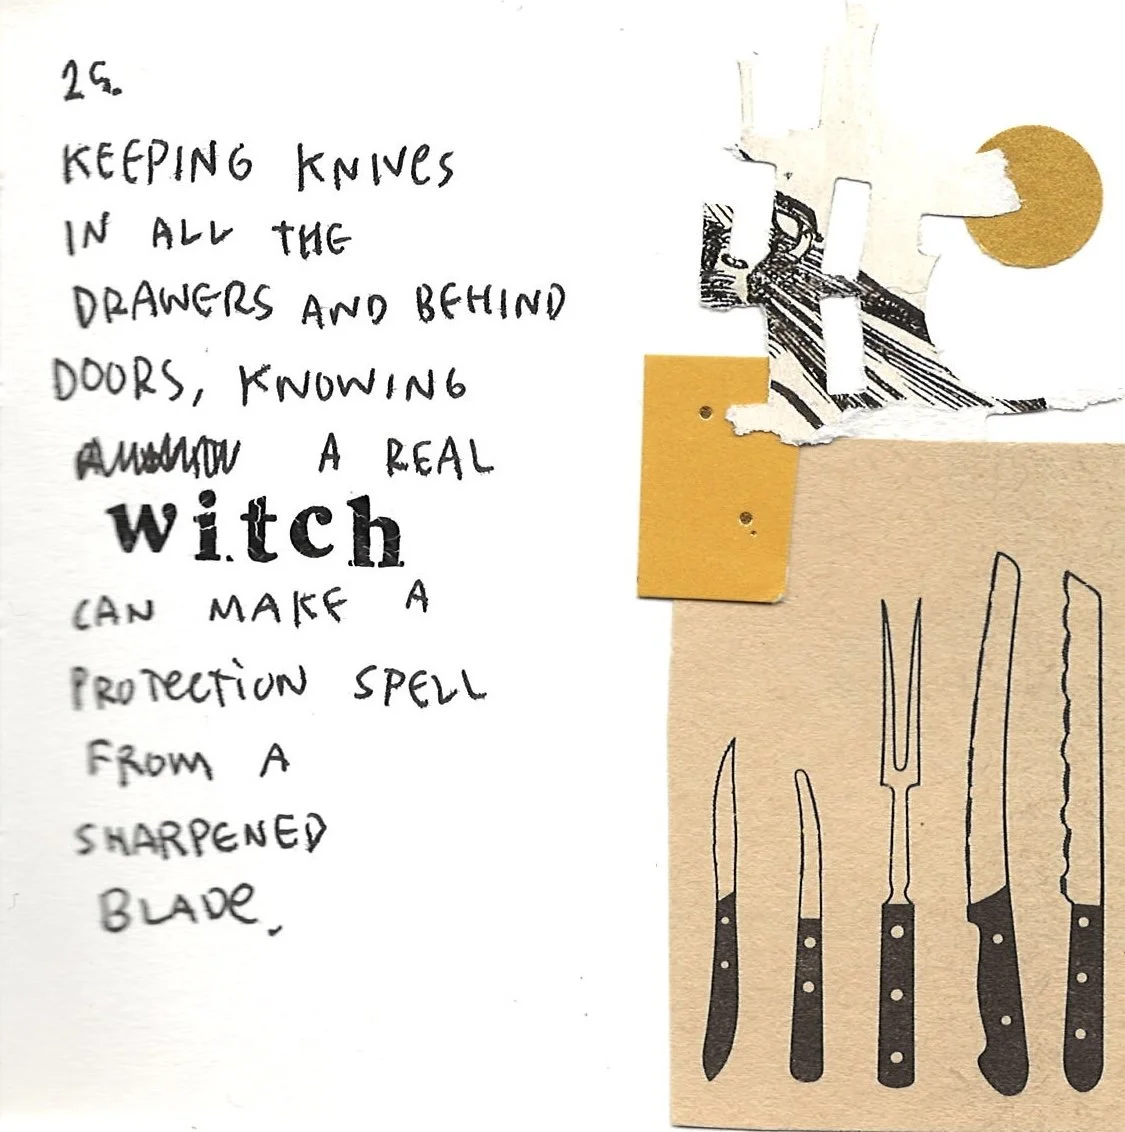 25.
KEEPING KNIVES
IN ALL THE
DRAWERS AND BEHIND
DOORS, KNOWING
A REAL
witch
CAN MAKE A
PROTECTION SPELL
FROM A
SHARPENED
BLADE.